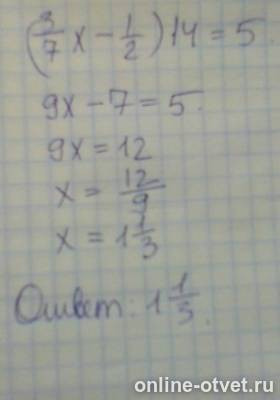 (3/7 x - 1/2) 14 = 5.
9x - 7 = 5.
9x = 12
x = 12/9
x = 1 1/3
Ответ: 1 1/3.
online-otvet.ru